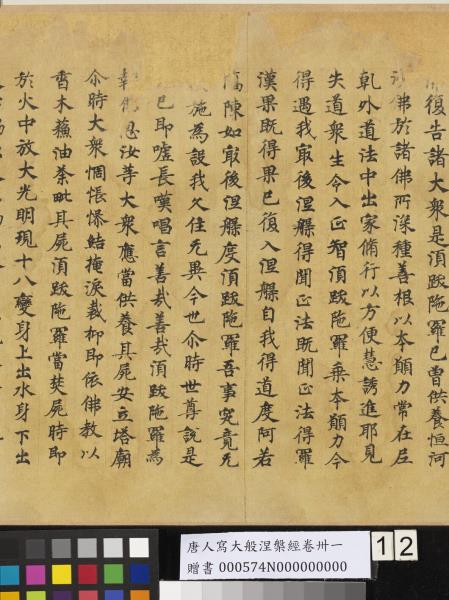 復告諸大衆是須跋陁羅已曾供養恒河
佛於諸佛所深種善根以本願力常在尼
乹外道法中出家脩行以方便慧誘進耶見
失道衆生令入正智須跋陁羅乘本願力今
得遇我冣後涅槃得聞正法既聞正法得羅
漢果既得果已復入涅槃自我得道度阿若
憍陳如冣後涅槃度須跋陁羅吾事究竟无
施為設我久住无異今世尒時世尊說是
已即噓長嘆唱言善哉善哉須跋陁羅為
報佛恩汝等大衆應當供養其屍安立塔廟
尒時大衆惆悵慘結掩淚裁抑即依佛教以
香木蘓油荼毗其屍須跋陁羅當焚屍時即
於火中放大光明現十八變身上出水身下出
唐人寫大般涅槃經卷卅一
贈書 000574N000000000
12